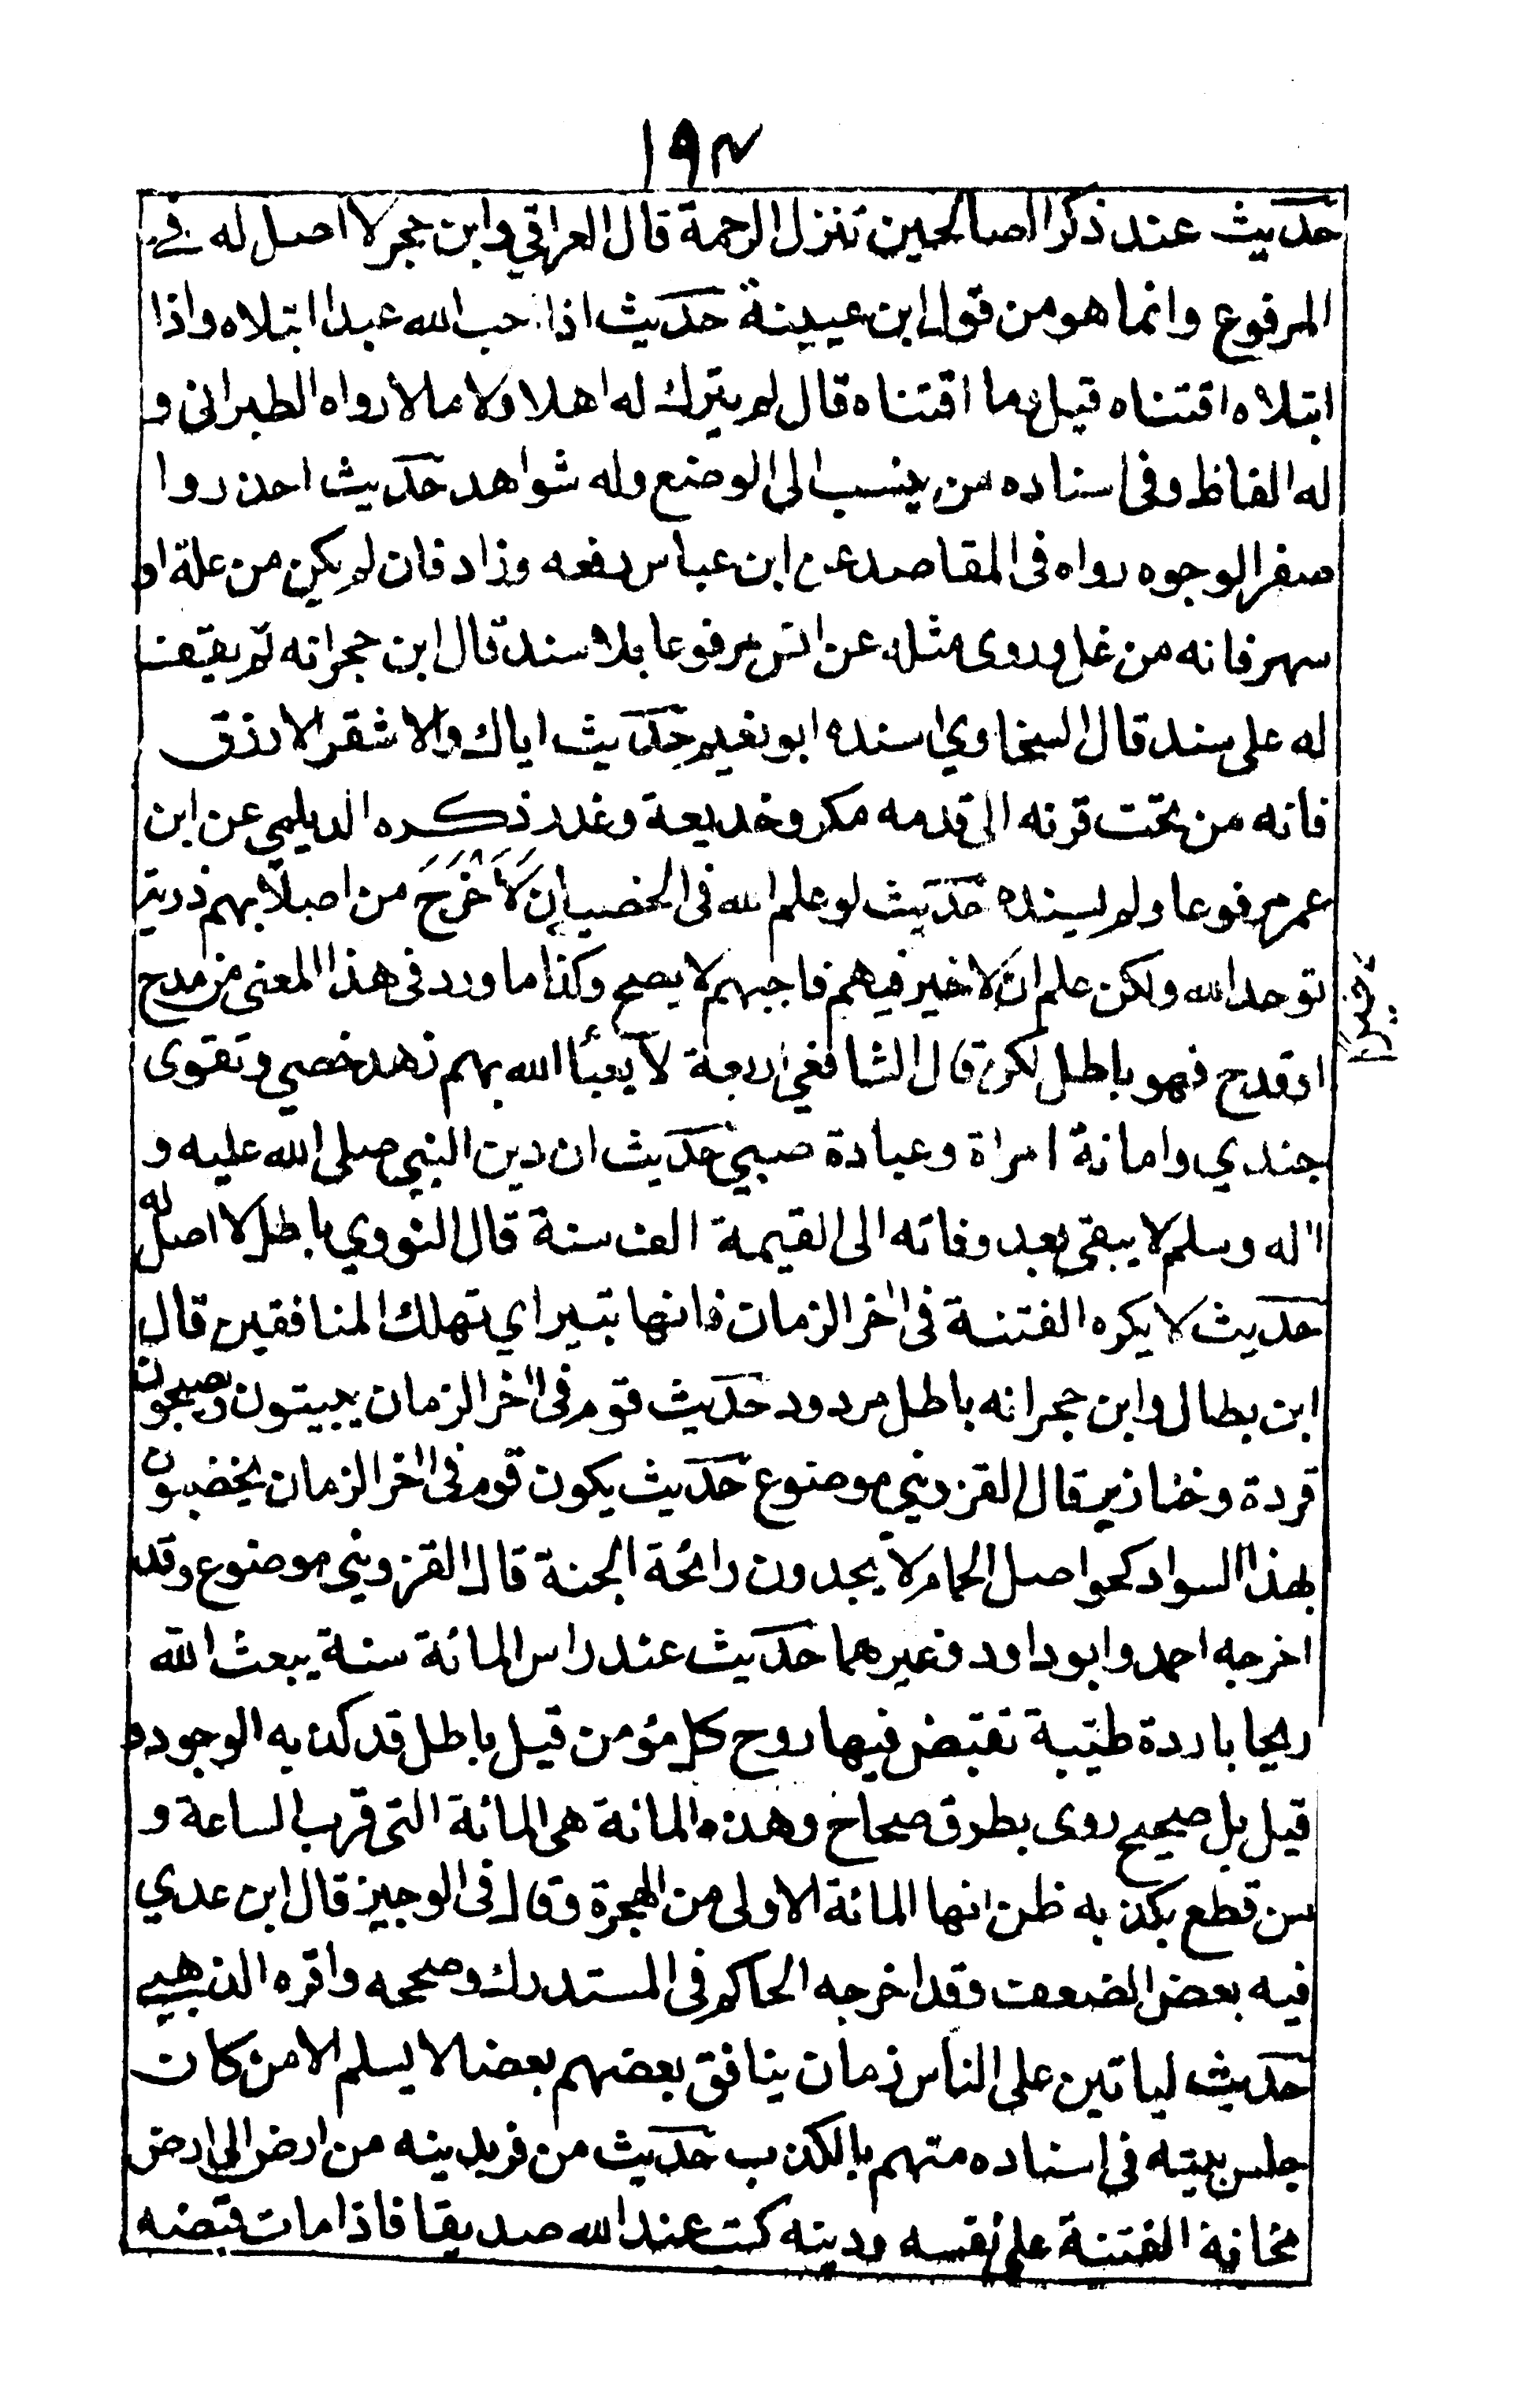 ١٩٣
حديث عند ذكر الصالحين تنزل الرحمة قال العراقي وابن حجر لا اصل له في
المرفوع وانما هو من قول ابن عيينة حديث اذا احب الله عبدا ابتلاه واذا
ابتلاه اقتناه قيل وما اقتناه قال لم يترك له اهلا ولا مالا رواه الطبراني و
له الفاظ وفي اسناده من ينسب الى الوضع وله شواهد حديث احذروا
صفر الوجوه رواه في المقاصد عن ابن عباس رفعه وزاد فان لم يكن من علة او
سهر فانه من غل وروى مثله عن انس مرفوعا بلا سند قال ابن حجر انه لم يقف
له على سند قال السخاوي اسنده ابو نعيم حديث اياك والاشقر الازرق
فانه من تحت قرنه الى قدمه مكر وخديعة وغدر ذكره الديلمي عن ابن
عمر مرفوعا ولم يسنده حديث لو علم الله في الخصيان لاخرج من اصلابهم ذرية
توحد الله ولكن علم ان لا خير فيهم فاجبهم لا يصح وكذا ما ورد في هذا المعنى من مدح
او قدح فهو باطل لكن قال الشافعي اربعة لا يعبأ الله بهم زهد خصي وتقوى
جندي وامانة امراة وعبادة صبي حديث ان دين النبي صلى الله عليه و
اله وسلم لا يبقى بعد وفاته الى القيمة الف سنة قال النووي باطل لا اصل له
حديث لا يكره الفتنة في اخر الزمان فانها تبير اي تهلك المنافقين قال
ابن بطال وابن حجر انه باطل مردود حديث قوم في اخر الزمان يبيتون ويصبحون
قردة وخنازير قال القزويني موضوع حديث يكون قوم في اخر الزمان يخضبون
بهذا السواد كحواصل الحمام لا يجدون رائحة الجنة قال القزويني موضوع وقد
اخرجه احمد وابو داود وغيرهما حديث عند راس المائة سنة يبعث الله
ريحا باردة طيبة تقبض فيها روح كل مؤمن قيل باطل قد كذبه الوجود و
قيل بل صحيح روى بطرق صحاح وهذه المائة هي المائة التي قرب الساعة و
من قطع بكذبه ظن انها المائة الاولى من الهجرة وقال في الوجيز قال ابن عدي
فيه بعض الضعف وقد اخرجه الحاكم في المستدرك وصححه واقره الذهبي
حديث لياتين على الناس زمان ينافق بعضهم بعضا لا يسلم الا من كان
جلس بيته في اسناده متهم بالكذب حديث من فر بدينه من ارض الى ارض
مخافة الفتنة على نفسه ودينه كتب عند الله صديقا فاذا مات قبضه